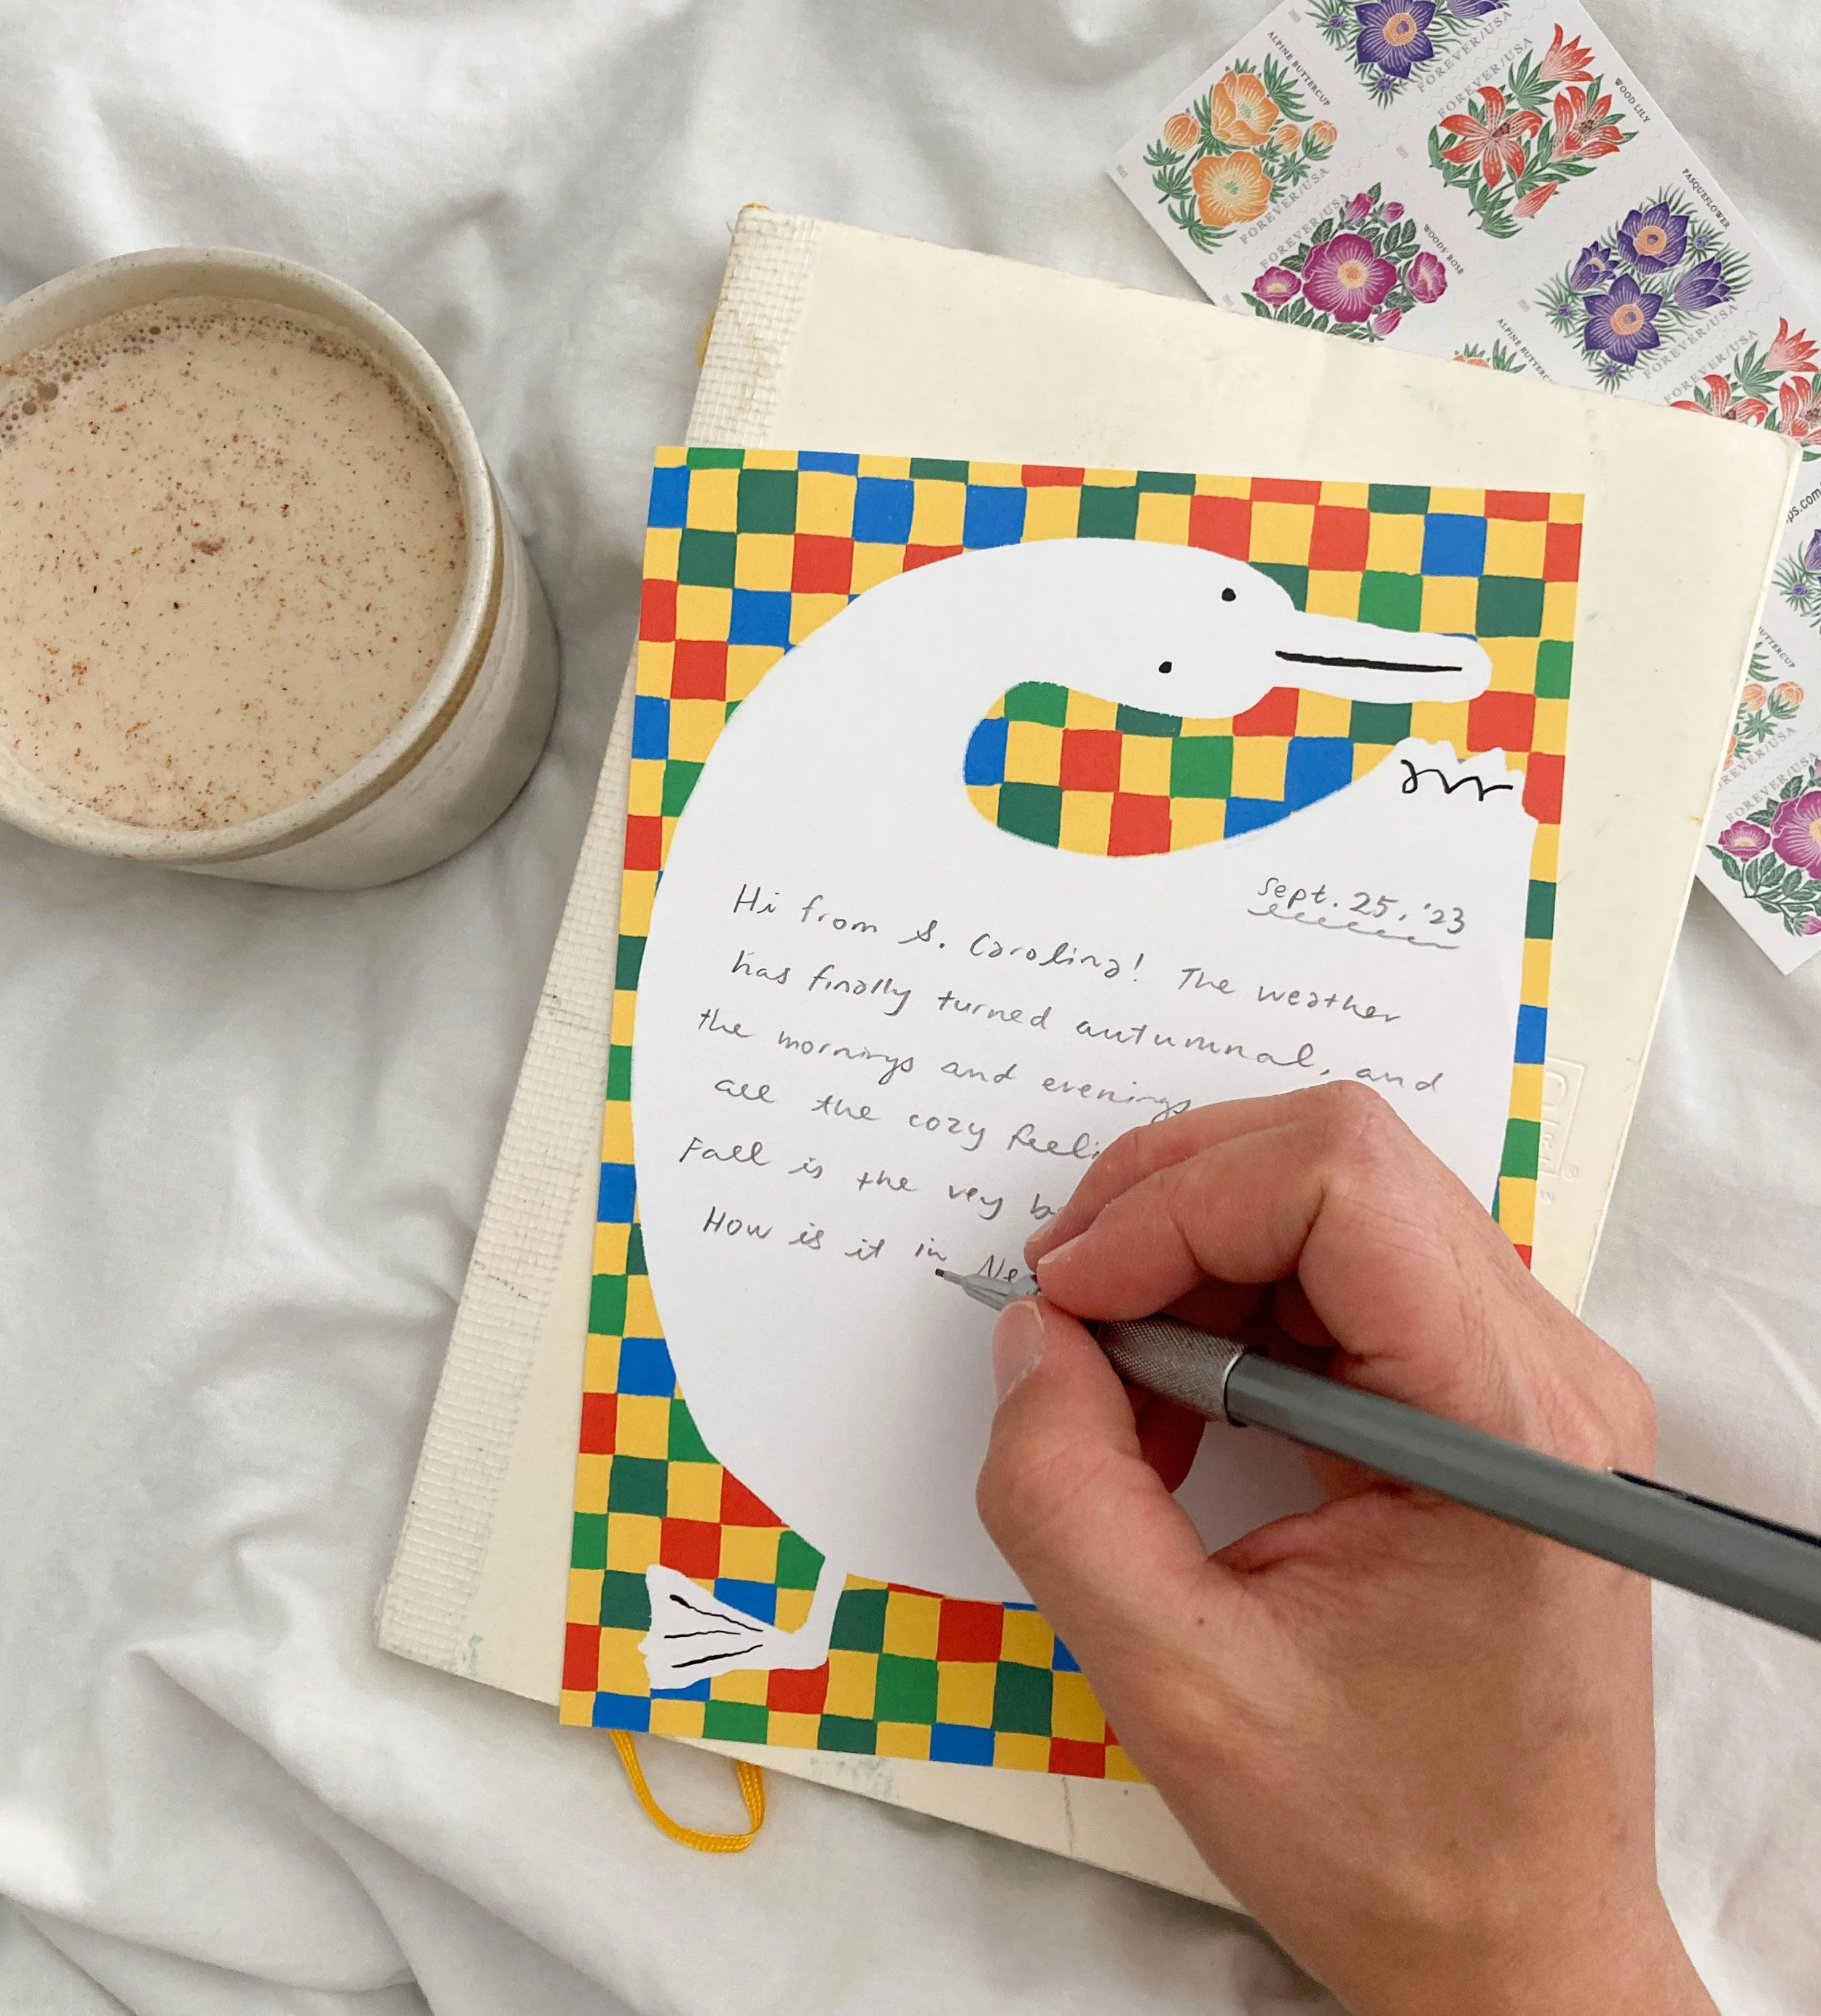 Sept. 25, '23
Hi from S. Carolina! The weather
has finally turned autumnal, and
the mornings and evenings
all the cozy feeli
Fall is the very b
How is it in Ne
ALPINE BUTTERCUP
FOREVER/USA
FOREVER/USA
WOOD LILY
FOREVER/USA
FOREVER/USA
WOODS' ROSE
PASQUEFLOWER
FOREVER/USA
ALPINE BUTTERC
FOREVER/USA
ps.com
UTTERCUP
REVER/USA
FOREVER/USA